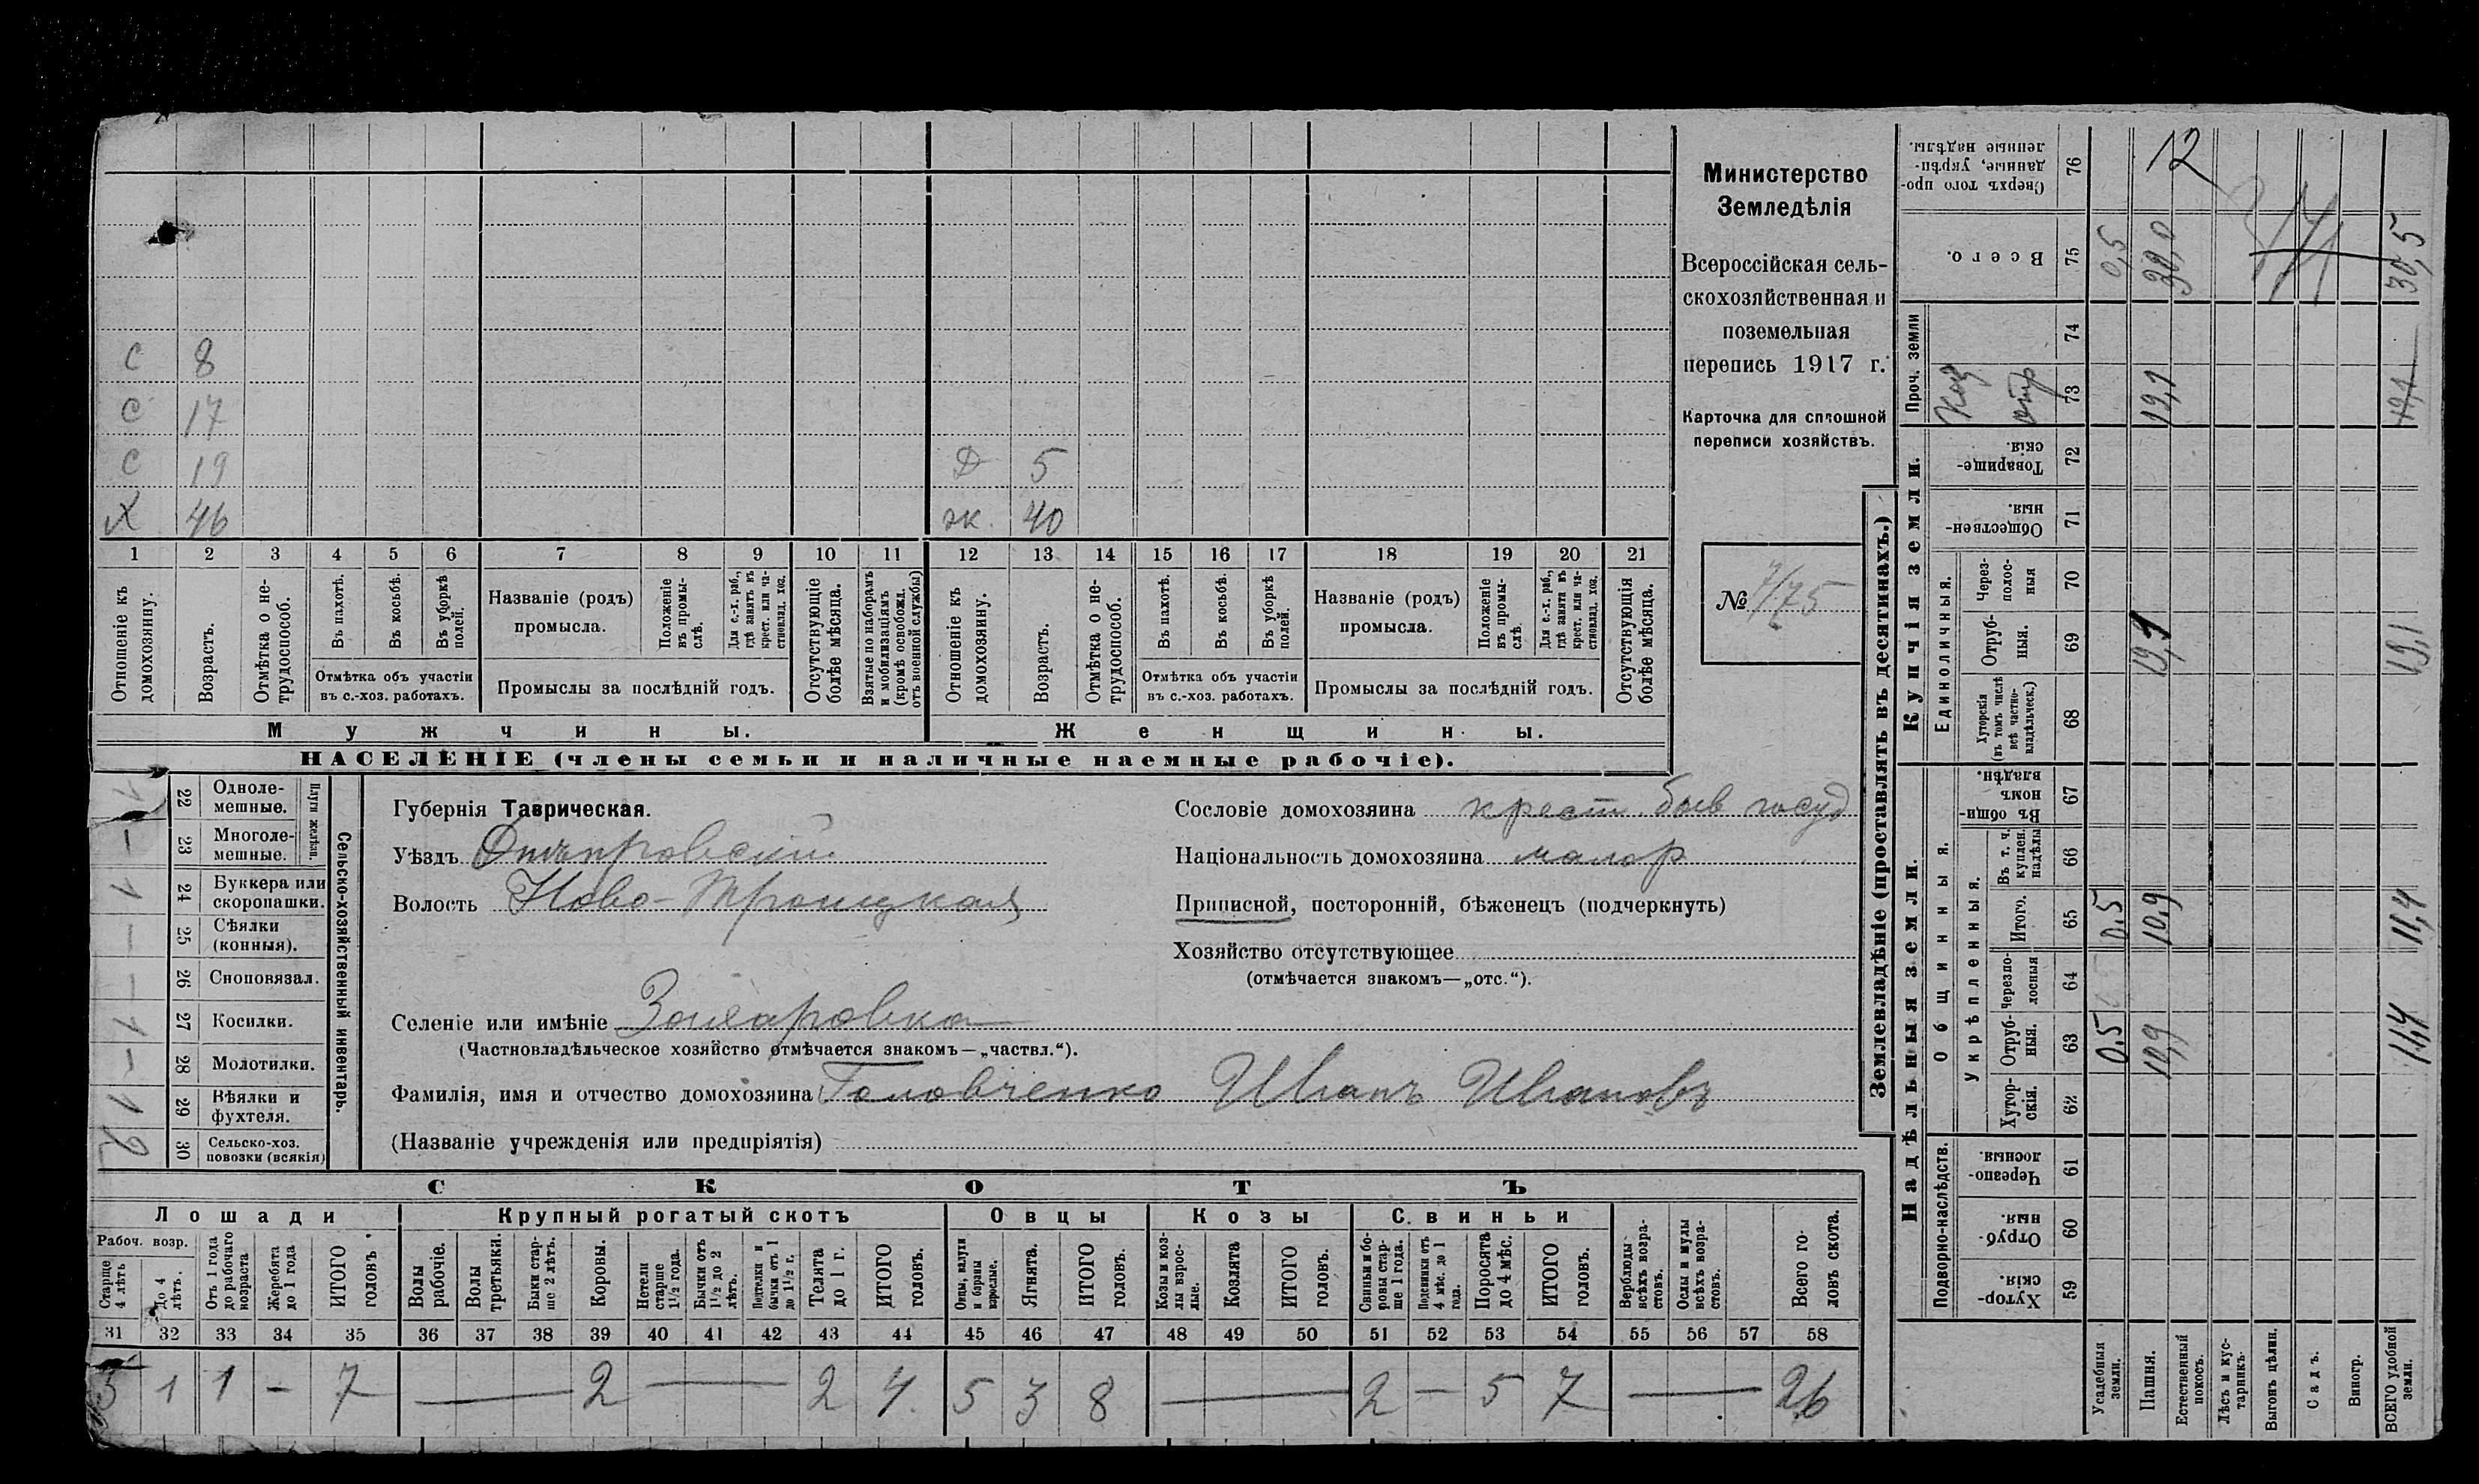 Министерство
Земледѣлія
Всероссійская сель-
скохозяйственная и
поземельная
перепись 1917 г.
Карточка для сплошной
переписи хозяйствъ.
№ 7/75
С 8
С 17
С 19 Д 5
Х 46 ж. 40
1 2 3 4 5 6 7 8 9 10 11 12 13 14 15 16 17 18 19 20 21
Отношеніе къ домохозяину.
Возрастъ.
Отмѣтка о не-трудоспособ.
Въ пахотѣ.
Въ косьбѣ.
Въ уборкѣ полей.
Отмѣтка объ участіи
въ с.-хоз. работахъ.
Названіе (родъ)
промысла.
Положеніе въ промы-слѣ.
Для с.-х. раб., гдѣ занятъ въ крест. или ча-стновлад. хоз.
Промыслы за послѣдній годъ.
Отсутствующіе болѣе мѣсяца.
Взятые по наборамъ и мобилизаціямъ (кромѣ освобожд. отъ военной службы)
Отношеніе къ домохозяину.
Возрастъ.
Отмѣтка о не-трудоспособ.
Въ пахотѣ.
Въ косьбѣ.
Въ уборкѣ полей.
Отмѣтка объ участіи
въ с.-хоз. работахъ.
Названіе (родъ)
промысла.
Положеніе въ промы-слѣ.
Для с.-х. раб., гдѣ занята въ крест. или ча-стновлад. хоз.
Промыслы за послѣдній годъ.
Отсутствующія болѣе мѣсяца.
Мужчины. Женщины.
НАСЕЛЕНІЕ (члены семьи и наличные наемные рабочіе).
Сельско-хозяйственный инвентарь.
Плуги желѣзн.
22 Одноле-мешные. 1
23 Многоле-мешные. –
24 Буккера или скоропашки. 1
25 Сѣялки (конныя). –
26 Сноповязал. –
27 Косилки. 1
28 Молотилки. –
29 Вѣялки и фухтеля. 1
30 Сельско-хоз. повозки (всякія) 2
Губернія Таврическая.
Уѣздъ Днѣпровскій
Волость Ново-Троицкая
Селеніе или имѣніе Захаровка
(Частновладѣльческое хозяйство отмѣчается знакомъ—„частвл.“).
Фамилія, имя и отчество домохозяина Головченко Иванъ Ивановъ
(Названіе учрежденія или предпріятія)
Сословіе домохозяина крест. быв госуд
Національность домохозяина малор
Приписной, посторонній, бѣженецъ (подчеркнуть)
Хозяйство отсутствующее
(отмѣчается знакомъ—„отс.“).
СКОТЪ
Лошади Крупный рогатый скотъ Овцы Козы Свиньи
Рабоч. возр.
Старше 4 лѣтъ
До 4 лѣтъ.
Отъ 1 года до рабочаго возраста
Жеребята до 1 года
ИТОГО головъ.
Волы рабочіе.
Волы третьяки.
Быки стар-ше 2 лѣтъ.
Коровы.
Нетели старше 1½ года.
Бычки отъ 1½ до 2 лѣтъ.
Подтелки и бычки отъ 1 до 1½ г.
Телята до 1 г.
ИТОГО головъ.
Овцы, валухи и бараны взрослые.
Ягнята.
ИТОГО головъ.
Козы и коз-лы взрос-лые.
Козлята
ИТОГО головъ.
Свиньи и бо-ровы стар-ше 1 года.
Подсвинки отъ 4 мѣс. до 1 года.
Поросята до 4 мѣс.
ИТОГО головъ.
Верблюды всѣхъ возра-стовъ.
Ослы и мулы всѣхъ возра-стовъ.
Всего го-ловъ скота.
31 32 33 34 35 36 37 38 39 40 41 42 43 44 45 46 47 48 49 50 51 52 53 54 55 56 57 58
5 1 1 – 7 — 2 — 2 4 5 3 8 — 2 – 5 7 — 26
Землевладѣніе (проставлять въ десятинахъ.)
Надѣльныя земли.
Купчія земли.
Проч. земли
Подворно-наслѣдств.
Общинныя.
Укрѣпленныя.
Единоличныя.
Хутор-скія. 59
Отруб-ныя. 60
Черезпо-лосныя. 61
Хутор-скія. 62
Отруб-ныя. 63 0,5 10,9 11,4
Черезпо-лосныя 64
Итого. 65 0,5 10,9 11,4
Въ т. ч. куплен. надѣлы 66
Въ общин-номъ владѣн. 67
Хуторскія (въ томъ числѣ всѣ частно-владѣльческ.) 68
Отруб-ныя. 69 19,1 19,1
Через-полос-ныя 70
Обществен-ныя. 71
Товарище-скія. 72
73 19,1 19,1
74
Всего. 75 0,5 30,0 30,5
Сверхъ того про-данные, укрѣп-ленные надѣлы. 76 12
Усадебныя земли.
Пашня.
Естественный покосъ.
Лѣсъ и кус-тарникъ.
Выгонъ цѣлин.
Садъ.
Виногр.
ВСЕГО удобной земли.